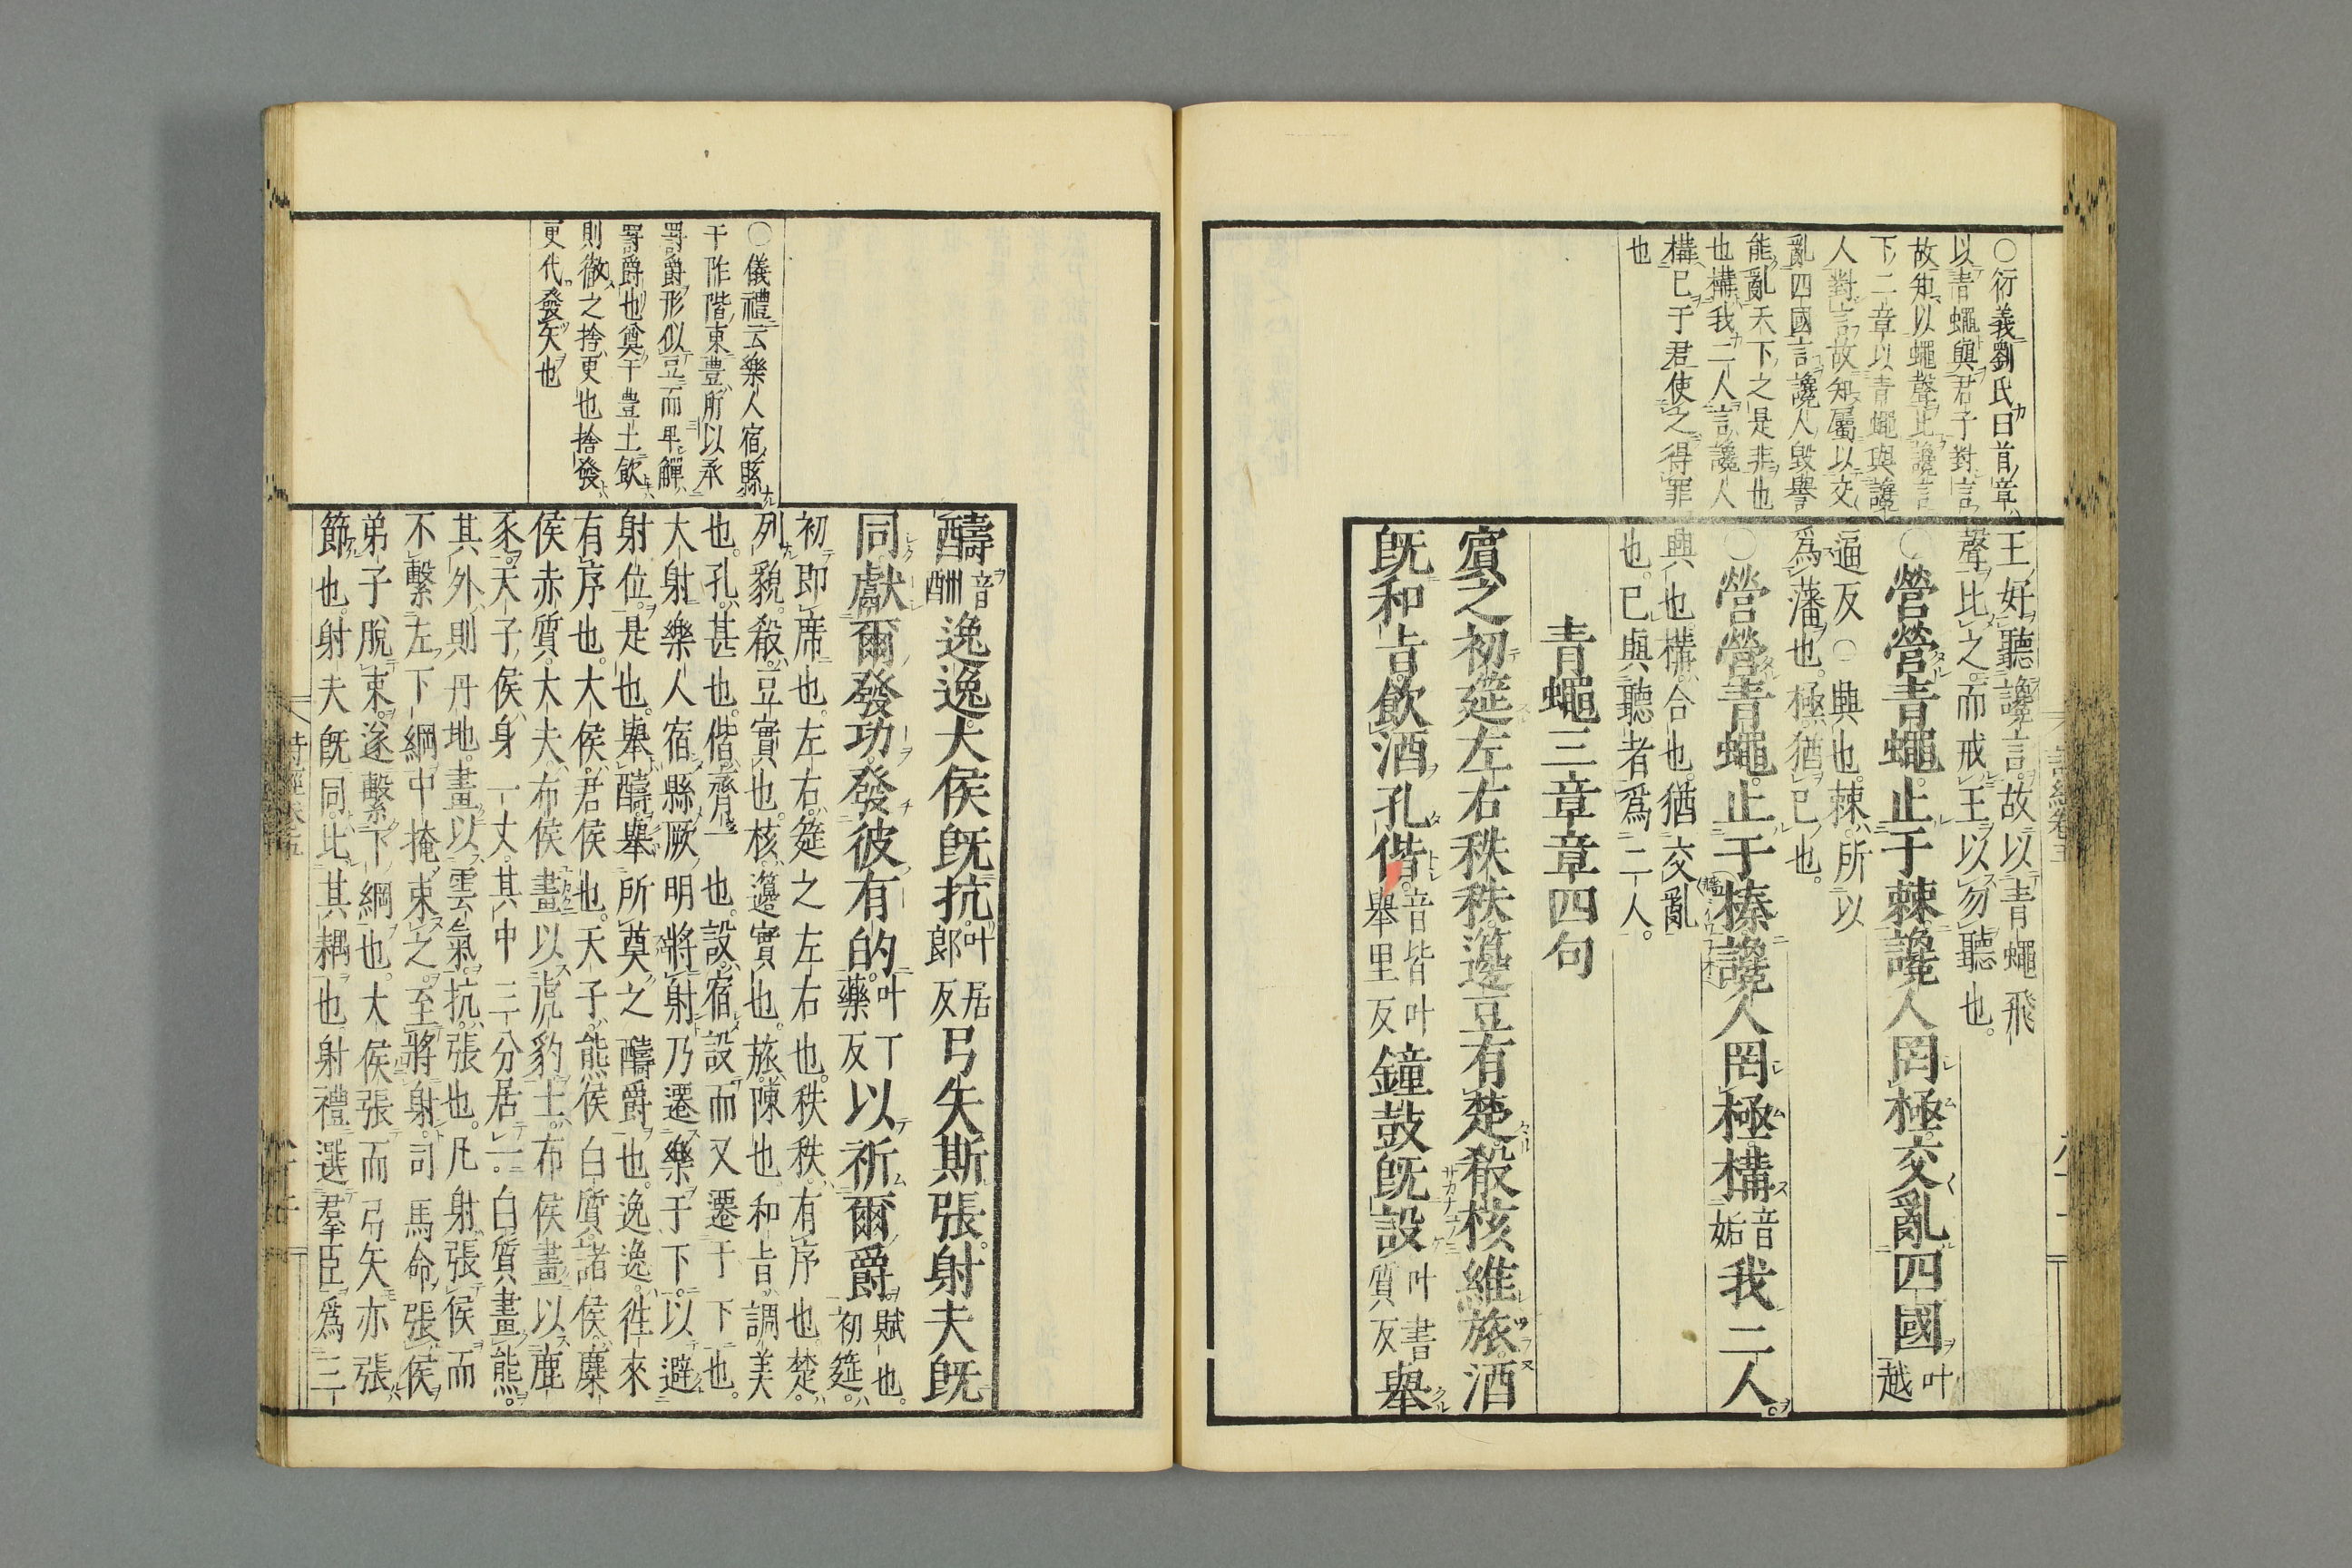 〇衍義劉氏曰首章
以青蠅與君子對言
故知以蠅聲比讒言
下二章以青蠅與讒
人對言故知屬以交
亂四國言讒人毀譽
能亂天下之是非也
也構我二人言讒人
構已于君使之得罪
也
王好聽讒言故以青蠅飛
聲比之而戒王以勿聽也
〇營營青蠅止于棘讒人罔極交亂四國叶越
逼反〇興也棘所以
爲藩也極猶已也
〇營營青蠅止于榛讒人罔極構音姤我二人
興也構合也猶交亂
也已與聽者爲二人
青蠅三章章四句
賓之初筵左右秩秩籩豆有楚殽核維旅酒
旣和旨飲酒孔偕音皆叶舉里反鐘鼓旣設叶書質反舉
〇儀禮云樂人宿縣
于阼階東豊所以承
罸爵形似豆而卑觶
罸爵也奠于豊上飲
則徹之捨更也捨發
更代發矢也
醻音酬逸逸大侯旣抗叶居郎反弓矢斯張射夫旣
同獻爾發功發彼有的叶丁藥反以祈爾爵賦也初筵
初即席也左右筵之左右也秩秩有序也楚
列貌殽豆實也核籩實也旅陳也和旨調美
也孔甚也偕齊一也設宿設而又遷于下也
大射樂人宿縣厥明將射乃遷樂于下以避
射位是也舉醻舉所奠之醻爵也逸逸徃來
有序也大侯君侯也天子熊侯白質諸侯麋
侯赤質大夫布侯畫以虎豹士布侯畫以鹿
豕天子侯身一丈其中三分居一白質畫熊
其外則丹地畫以雲氣抗張也凡射張侯而
不繫左下綱中掩束之至將射司馬命張侯
弟子脫束遂繫下綱也大侯張而弓矢亦張
節也射夫旣同比其耦也射禮選羣臣爲三